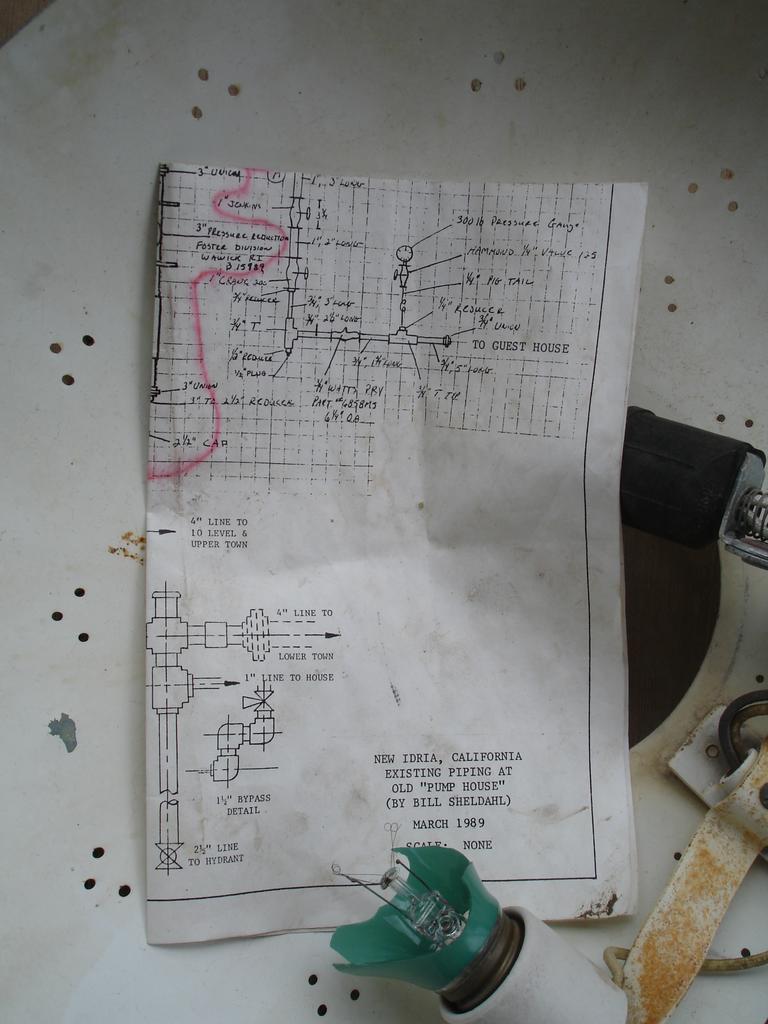 3" UNION
1", 3" LONG
1" JENKINS
3" PRESSURE REDUCTION
FOSTER DIVISION
WAWICK RI
1", 2" LONG
300 lb PRESSURE GAUGE
HAMMOND 1/4" VALVE 125
1/4" PIG TAIL
1/4" REDUCER
3/4" UNION
TO GUEST HOUSE
1" CRANE 200
3/4" REDUCER
3/4", 5" LONG
3/4", 2 1/2" LONG
3/4" T
1/2" REDUCE
1/2" PLUG
3/4", 5" LONG
3/4" T TYP
3/4" WATTS PRV
PART #
6 1/4" OA
3" UNION
3" TO 2 1/2" REDUCER
2 1/2" CAP
4" LINE TO
10 LEVEL &
UPPER TOWN
4" LINE TO
LOWER TOWN
1" LINE TO HOUSE
1½" BYPASS
DETAIL
2½" LINE
TO HYDRANT
NEW IDRIA, CALIFORNIA
EXISTING PIPING AT
OLD "PUMP HOUSE"
(BY BILL SHELDAHL)
MARCH 1989
SCALE: NONE